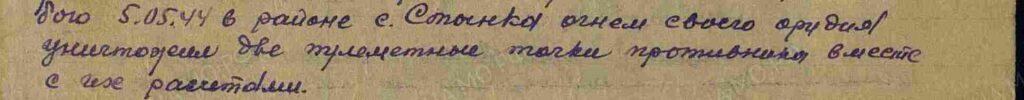 бою 5.05.44 в районе с. Стынка огнем своего орудия
уничтожил две пулеметные точки противника вместе
с их расчетами.